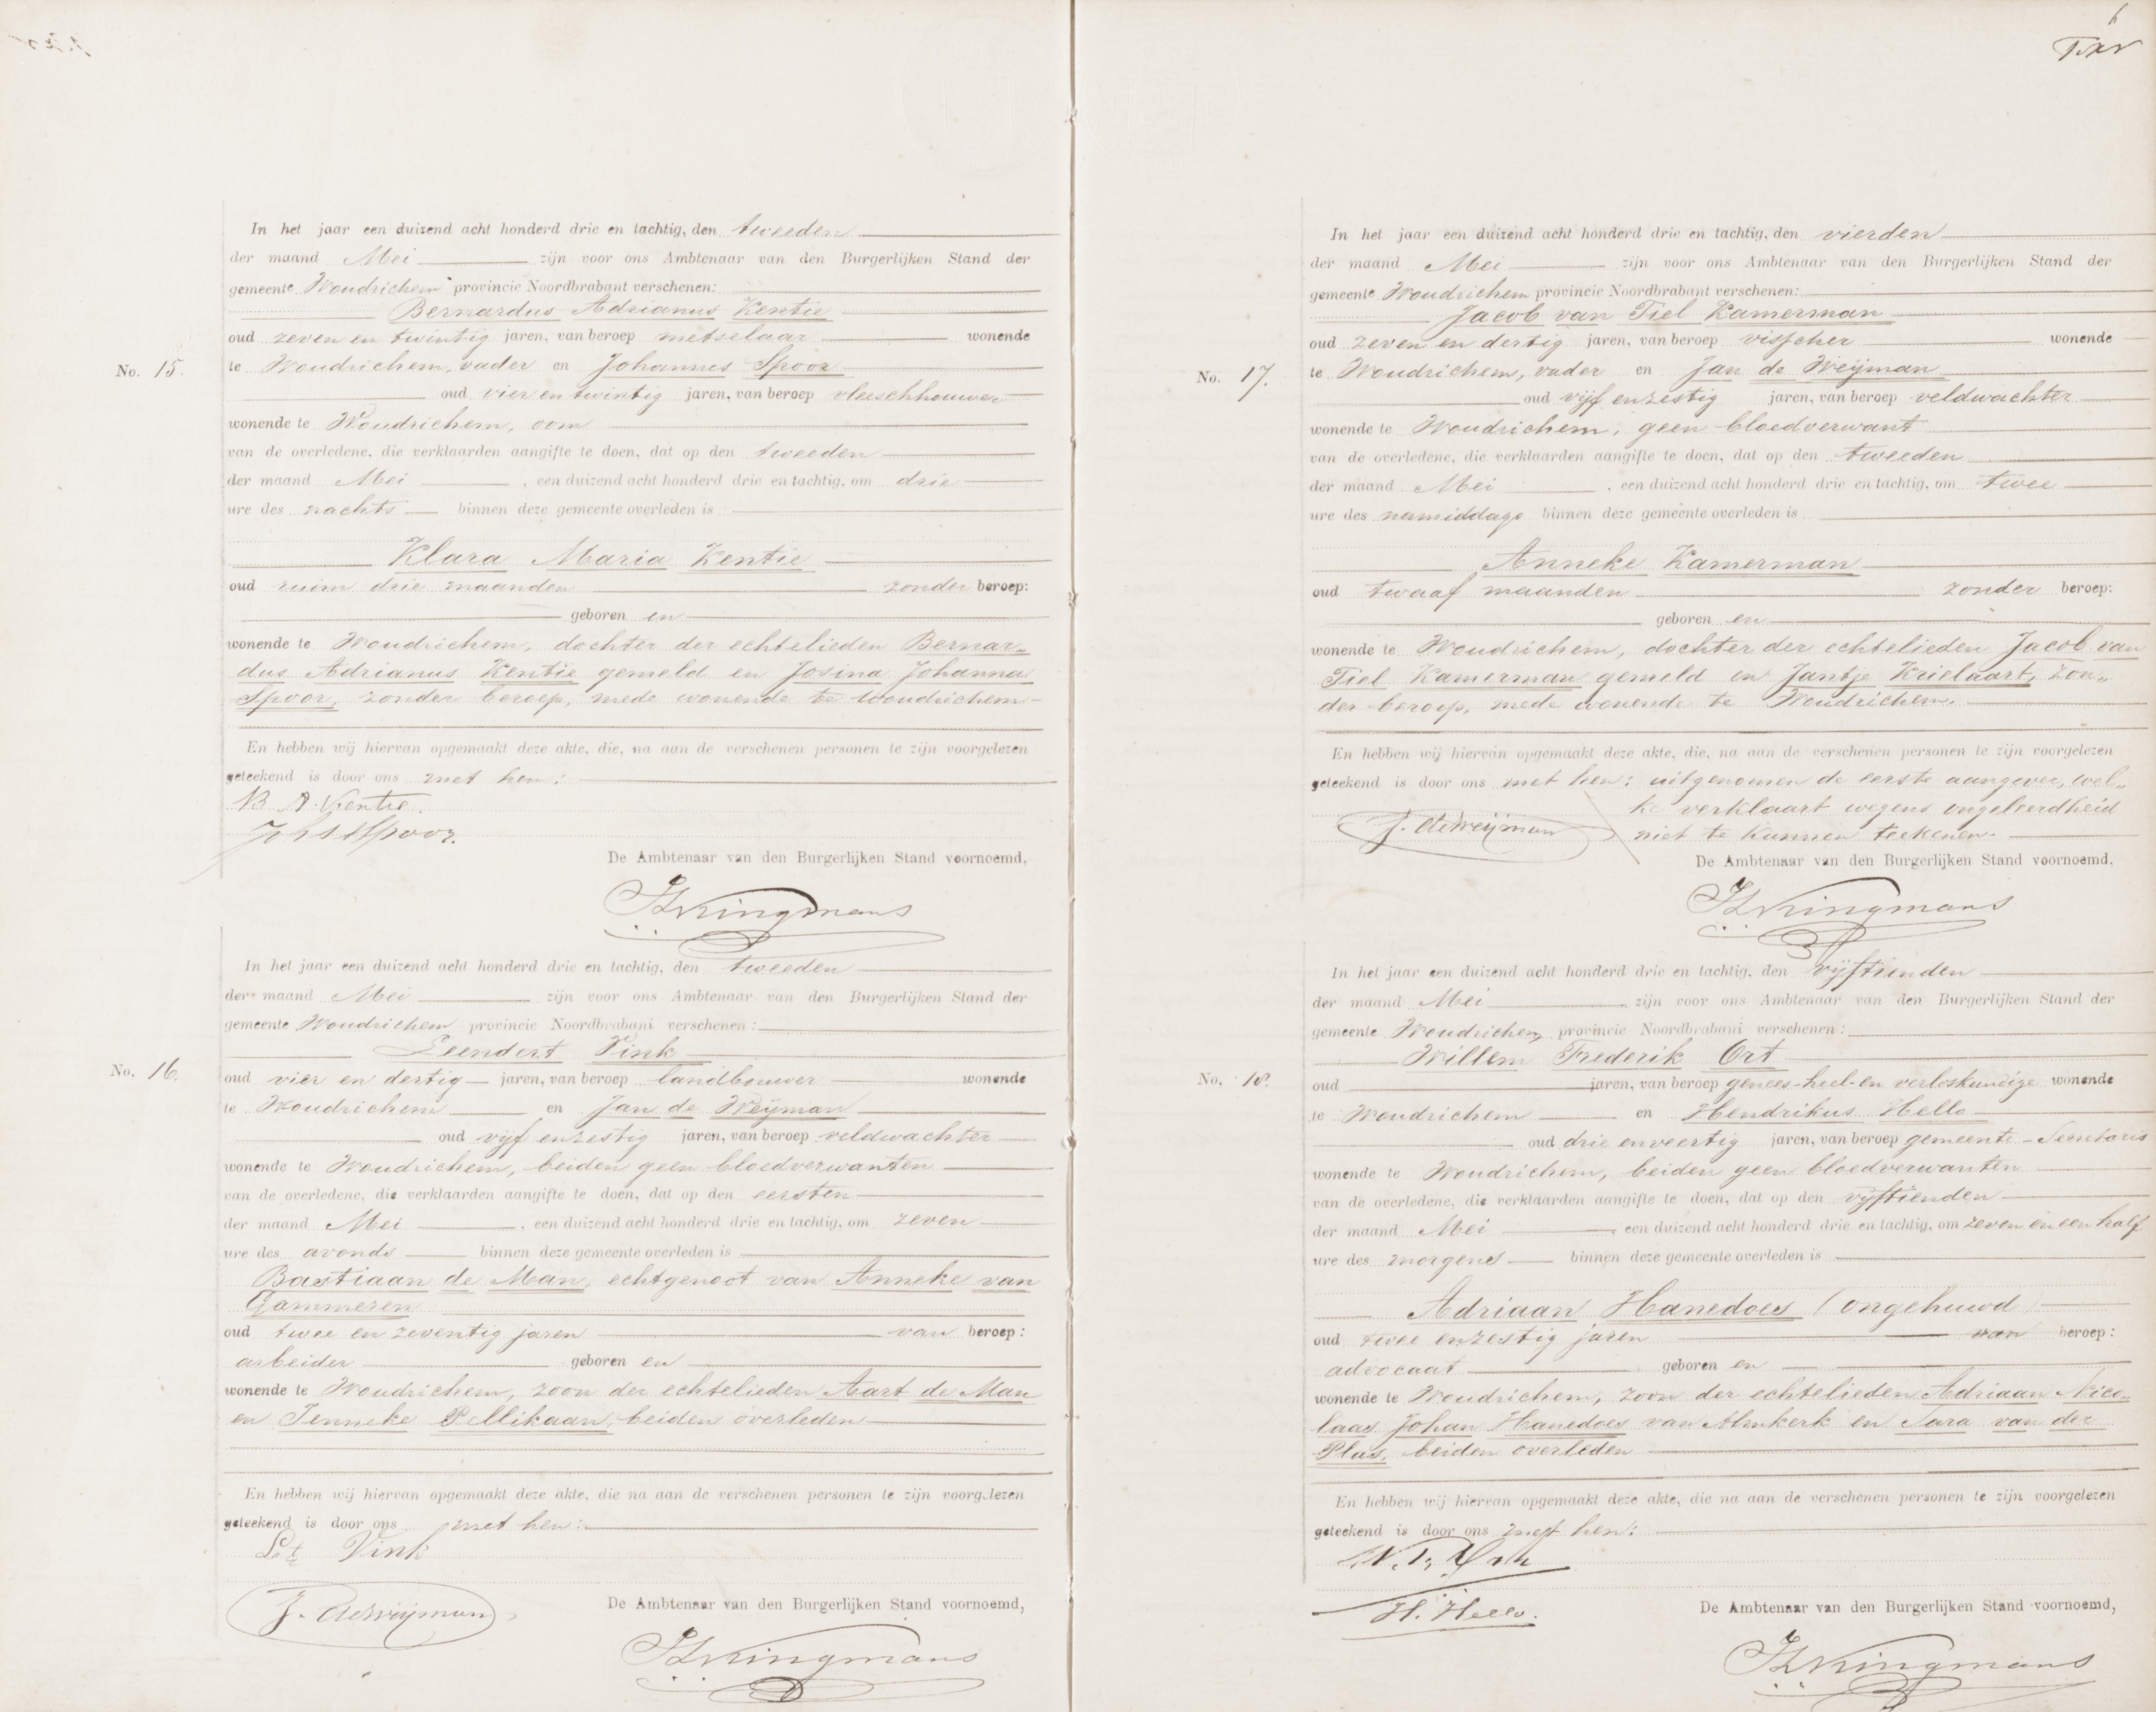 6
In het jaar een duizend acht honderd drie en tachtig, den tweeden
der maand Mei zijn voor ons Ambtenaar van den Burgerlijken Stand der
gemeente Woudrichem provincie Noordbrabant verschenen:
Bernardus Adrianus Kentie
oud zeven en twintig jaren, van beroep metselaar wonende
No. 15. te Woudrichem, vader en Johannes Spoor
oud vier en twintig jaren, van beroep vleeschhouwer
wonende te Woudrichem, oom
van de overledene, die verklaarden aangifte te doen, dat op den tweeden
der maand Mei, een duizend acht honderd drie en tachtig, om drie
ure des nachts binnen deze gemeente overleden is
Klara Maria Kentie
oud ruim drie maanden zonder beroep:
geboren en
wonende te Woudrichem, dochter der echtelieden Bernar-
dus Adrianus Kentie gemeld en Josina Johanna
Spoor, zonder beroep, mede wonende te Woudrichem
En hebben wij hiervan opgemaakt deze akte, die, na aan de verschenen personen te zijn voorgelezen
geteekend is door ons met hen:
B A. Kentie.
Johs Spoor.
De Ambtenaar van den Burgerlijken Stand voornoemd,
Kringmans
In het jaar een duizend acht honderd drie en tachtig, den tweeden
der maand Mei zijn voor ons Ambtenaar van den Burgerlijken Stand der
gemeente Woudrichem provincie Noordbrabant verschenen:
Leendert Vink
No. 16. oud vier en dertig jaren, van beroep landbouwer wonende
te Woudrichem en Jan de Weijman
oud vijf en zestig jaren, van beroep veldwachter
wonende te Woudrichem, beiden geen bloedverwanten
van de overledene, die verklaarden aangifte te doen, dat op den eersten
der maand Mei, een duizend acht honderd drie en tachtig, om zeven
ure des avonds binnen deze gemeente overleden is
Bastiaan de Man, echtgenoot van Anneke van
Gammeren
oud twee en zeventig jaren van beroep:
arbeider geboren en
wonende te Woudrichem, zoon der echtelieden Aart de Man
en Jenneke Pellikaan, beiden overleden
En hebben wij hiervan opgemaakt deze akte, die na aan de verschenen personen te zijn voorgelezen
geteekend is door ons met hen:
Lt Vink
J. de Weijman
De Ambtenaar van den Burgerlijken Stand voornoemd,
Kringmans
In het jaar een duizend acht honderd drie en tachtig, den vierden
der maand Mei zijn voor ons Ambtenaar van den Burgerlijken Stand der
gemeente Woudrichem provincie Noordbrabant verschenen:
Jacob van Tiel Kamerman
oud zeven en dertig jaren, van beroep visscher wonende
No. 17. te Woudrichem, vader en Jan de Weijman
oud vijf en zestig jaren, van beroep veldwachter
wonende te Woudrichem, geen bloedverwant
van de overledene, die verklaarden aangifte te doen, dat op den tweeden
der maand Mei, een duizend acht honderd drie en tachtig, om twee
ure des namiddags binnen deze gemeente overleden is
Anneke Kamerman
oud twaaf maanden zonder beroep:
geboren en
wonende te Woudrichem, dochter der echtelieden Jacob van
Tiel Kamerman gemeld en Jantje Krielaart, zon-
der beroep, mede wonende te Woudrichem.
En hebben wij hiervan opgemaakt deze akte, die, na aan de verschenen personen te zijn voorgelezen
geteekend is door ons met hen: uitgenomen de eerste aangever, wel-
ke verklaart wegens ongeleerdheid
J. de Weijman niet te kunnen teekenen.
De Ambtenaar van den Burgerlijken Stand voornoemd,
Kringmans
In het jaar een duizend acht honderd drie en tachtig, den vijftienden
der maand Mei zijn voor ons Ambtenaar van den Burgerlijken Stand der
gemeente Woudrichem provincie Noordbrabant verschenen:
Willem Frederik Ort
No. 18. oud jaren, van beroep genees-heel-en verloskundige wonende
te Woudrichem en Hendrikus Hello
oud drie en veertig jaren, van beroep gemeente-Secretaris
wonende te Woudrichem, beiden geen bloedverwanten
van de overledene, die verklaarden aangifte te doen, dat op den vijftienden
der maand Mei, een duizend acht honderd drie en tachtig, om zeven en een half
ure des morgens binnen deze gemeente overleden is
Adriaan Hanedoes (ongehuwd)
oud twee en zestig jaren van beroep:
advocaat geboren en
wonende te Woudrichem, zoon der echtelieden Adriaan Nico-
laas Johan Hanedoes van Almkerk en Sara van der
Plas, beiden overleden
En hebben wij hiervan opgemaakt deze akte, die na aan de verschenen personen te zijn voorgelezen
geteekend is door ons met hen:
W. F. Ort
H. Hello.
De Ambtenaar van den Burgerlijken Stand voornoemd,
Kringmans